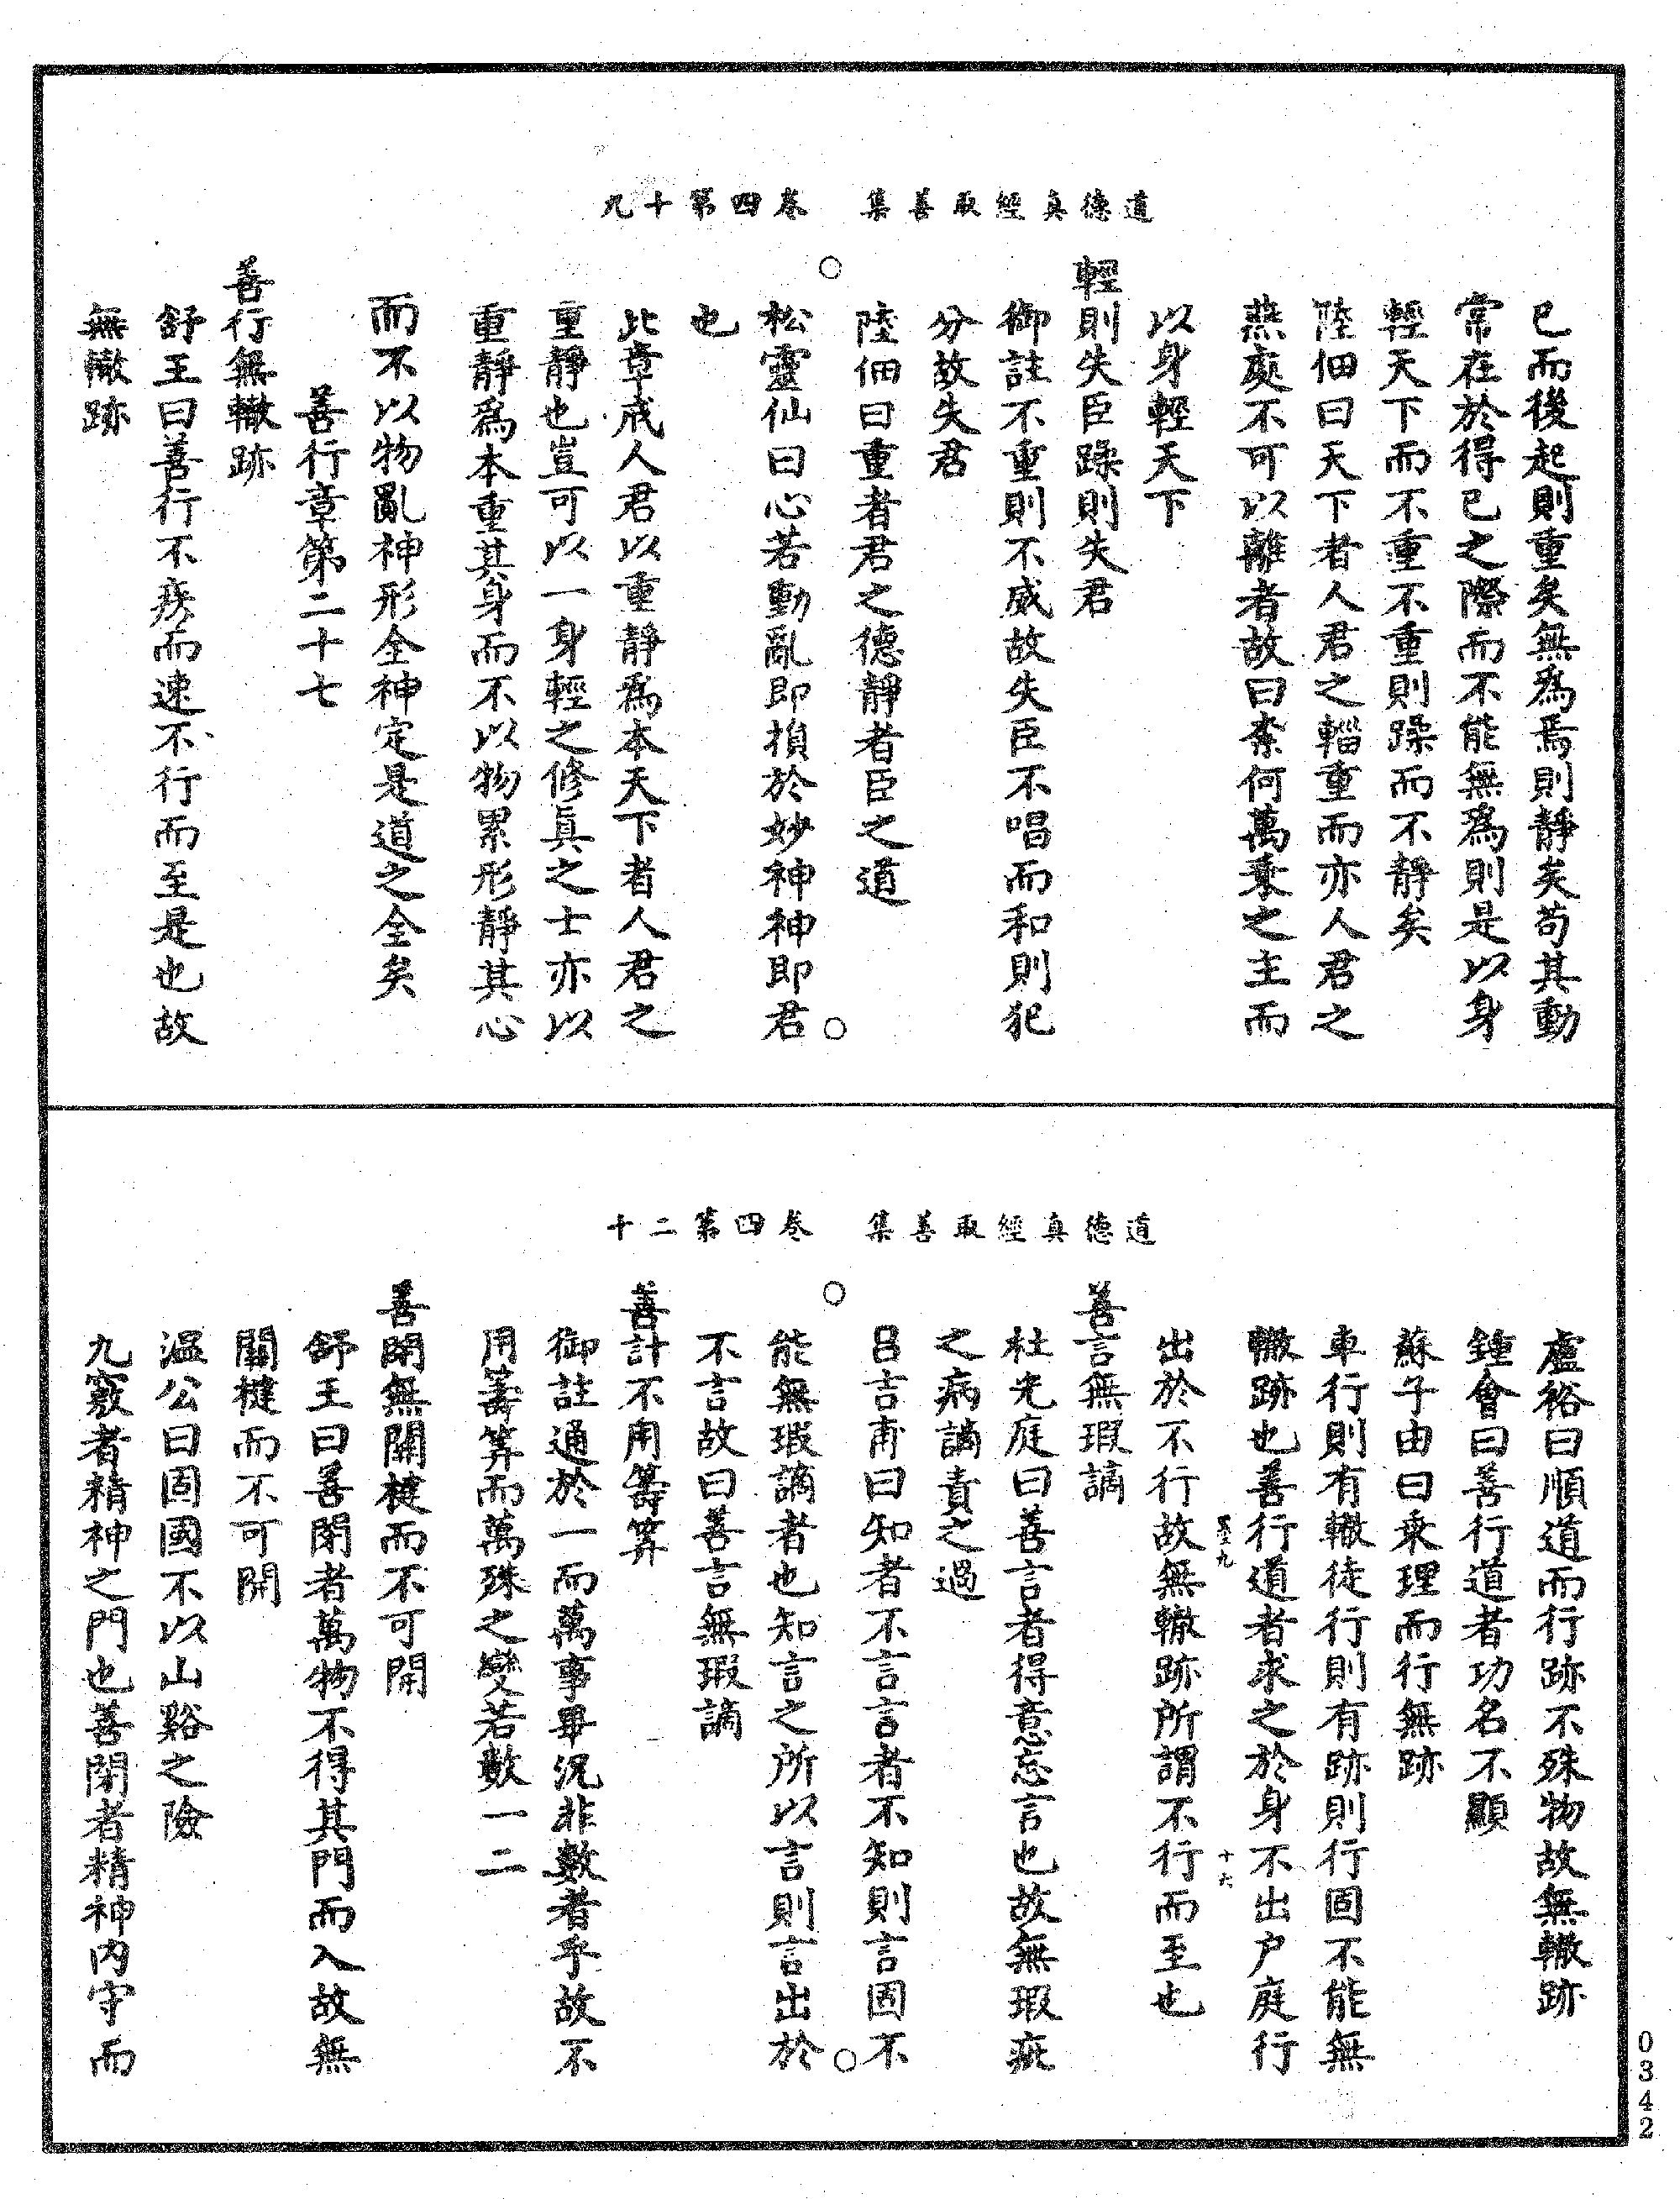 道德真經取善集　卷四第十九
已而後起則重矣無爲焉則靜矣苟其動
常在於得已之際而不能無爲則是以身
輕天下而不重不重則躁而不靜矣
陸佃曰天下者人君之輜重而亦人君之
燕處不可以離者故曰柰何萬乗之主而
以身輕天下
輕則失臣躁則失君
御註不重則不威故失臣不唱而和則犯
分故失君
陸佃曰重者君之德靜者臣之道
松靈仙曰心若動亂即損於妙神神即君
也
此章戒人君以重靜爲本天下者人君之
重靜也豈可以一身輕之修眞之士亦以
重靜爲本重其身而不以物累形靜其心
而不以物亂神形全神定是道之全矣
善行章第二十七
善行無轍跡
舒王曰善行不疾而速不行而至是也故
無轍跡
道德真經取善集　卷四第二十
盧裕曰順道而行跡不殊物故無轍跡
鍾會曰善行道者功名不顯
蘇子由曰乗理而行無跡
車行則有轍徒行則有跡則行固不能無
轍跡也善行道者求之於身不出户庭行
出於不行故無轍跡所謂不行而至也
善言無瑕謫
杜光庭曰善言者得意忘言也故無瑕疵
之病謫責之過
吕吉甫曰知者不言言者不知則言固不
能無瑕謫者也知言之所以言則言出於
不言故曰善言無瑕謫
善計不用籌筭
御註通於一而萬事畢況非數者乎故不
用籌筭而萬殊之變若數一二
善閉無關楗而不可開
舒王曰善閉者萬物不得其門而入故無
關楗而不可開
温公曰固國不以山谿之險
九竅者精神之門也善閉者精神内守而
十六
0342